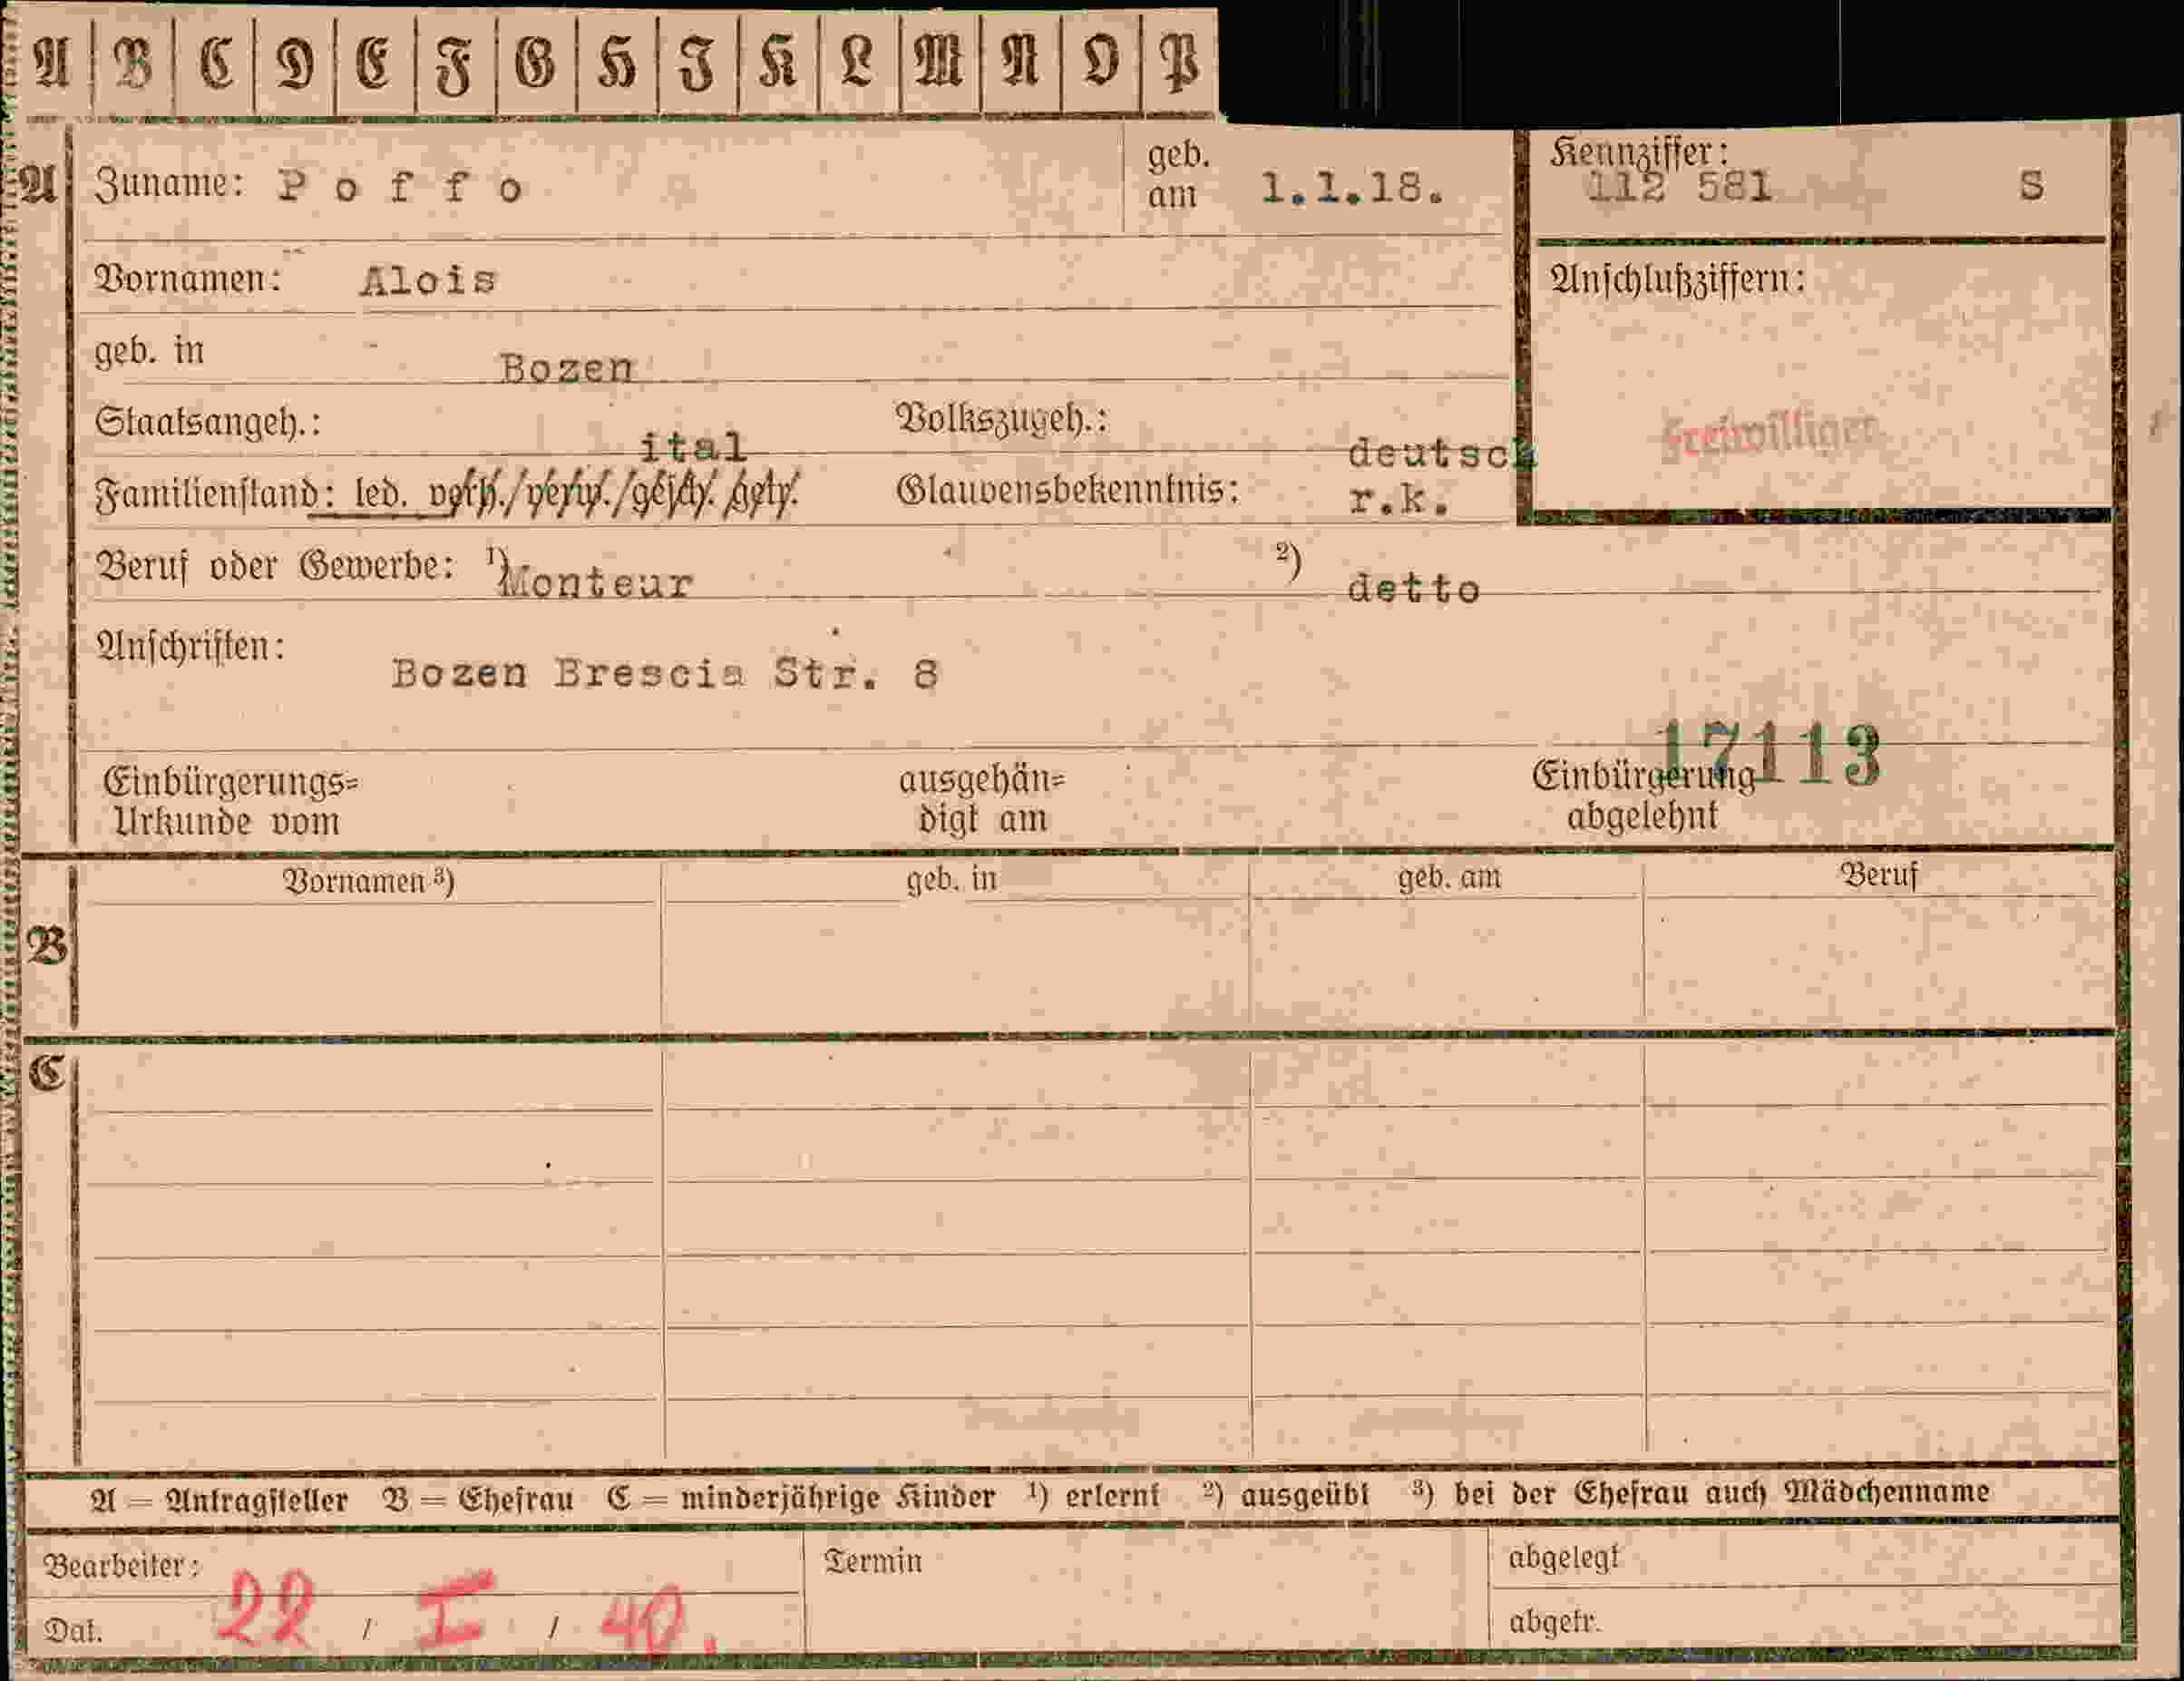 A B C D E F G H I K L M N O P
A Zuname: Poffo geb. am 1.1.18. Kennziffer: 112 581 S
Vornamen: Alois Anschlußziffern:
geb. in Bozen
Staatsangeh.: ital Volkszugeh.: deutsch Freiwilliger
Familienstand: led. verh./verw./gesch./getr. Glaubensbekenntnis: r.k.
Beruf oder Gewerbe: 1) Monteur 2) detto
Anschriften: Bozen Brescia Str. 8
17113
Einbürgerungs= ausgehän= Einbürgerung
Urkunde vom digt am abgelehnt
Vornamen 3) geb. in geb. am Beruf
B
C
A = Antragsteller B = Ehefrau C = minderjährige Kinder 1) erlernt 2) ausgeübt 3) bei der Ehefrau auch Mädchenname
Bearbeiter: Termin abgelegt
Dat. 22 / I / 40. abgetr.